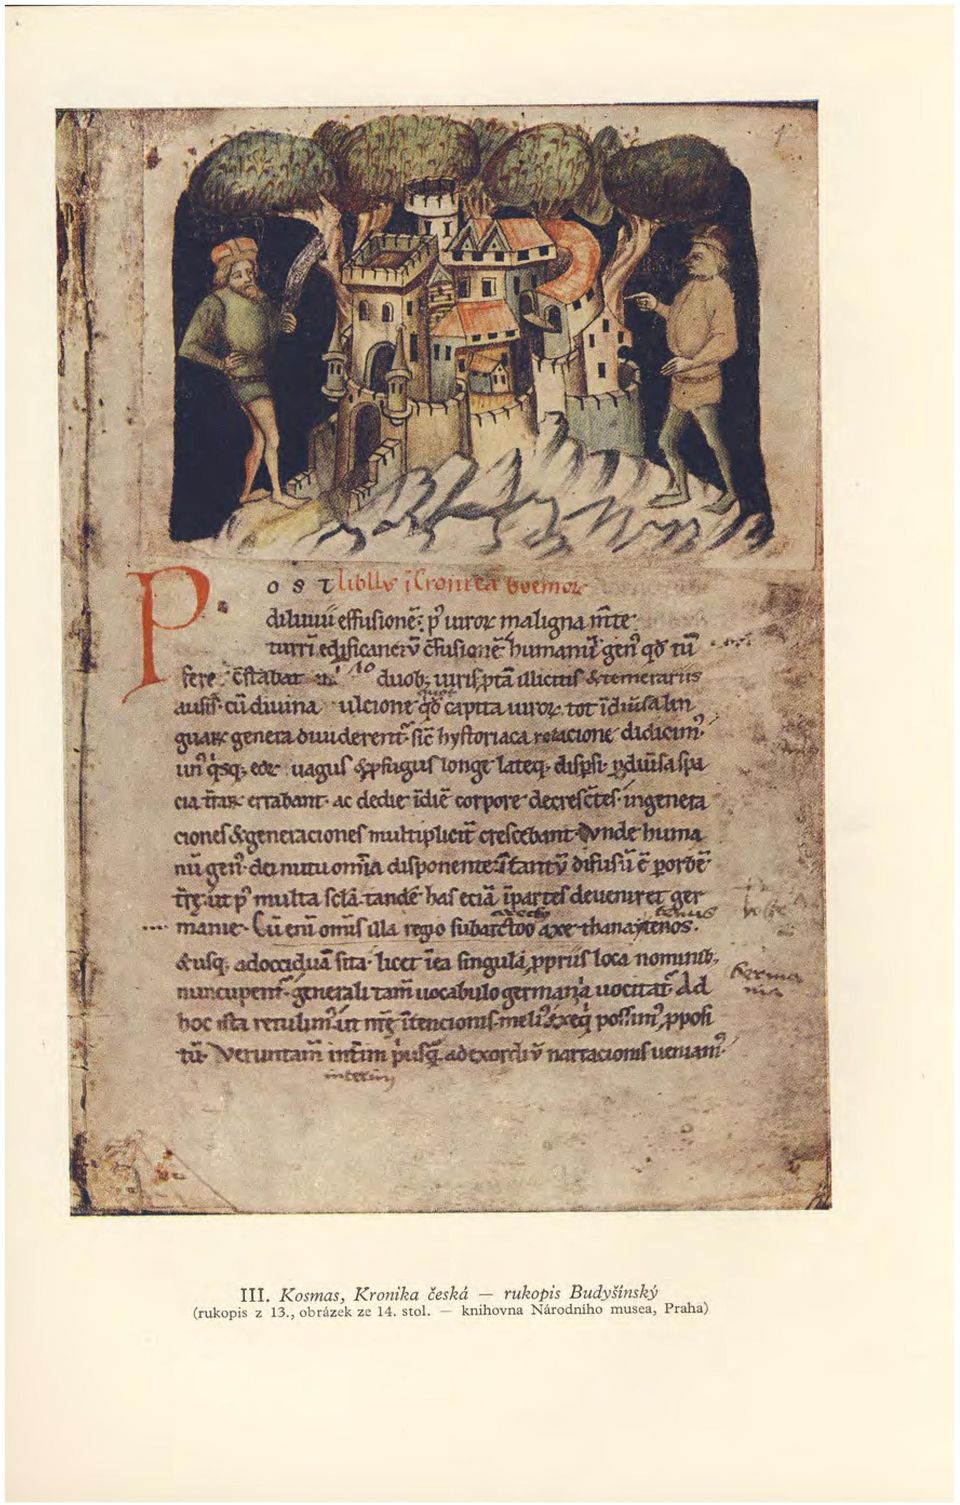 POST libll' i Cronicā boemoꝝ
diluuii effusionē: p' uiroꝝ maligna m̄te
turrī edificanciū c̄fusionē humanū gen' qd' tū
fere c̄stabat 10 duob; uiris ꝓptā illicitis & temerariis
quot
ausis cū diuina ulcione qd' capita uiroꝝ tot i diūsa lin
guaꝝ genera diuiderent' sic hystoriaca relacione didicim'
un' qsq; eoꝝ uagus & ꝓfugus longe lateq; dispsi ꝑ diūsa spa
cia t̄raꝝ errabant ac de die i diē corpore decrescētes in genera
ciones & generaciones multiplicit' crescebant Vnde huma
nū gen' dei nutu om̄ia disponente i tantū difusū ē ꝑ orbē
t̄rę ut p' multa sc̄la tandē has eciā i partes deueniret ger
manie Cū eni om̄is illa regio sub arctoo axe thanaytenos
& usq; ad occiduā sita licet i ea singula ꝓpriis loca nominib;
Germa
nia
nuncupent' generali tam̄ uocabulo germania uocitat' Ad
hoc ista retulim' ut nr̄ę i tencionis meli' exeq̇ possim' ꝓposi
tū Veruntam̄ int̄im p'usq̄ ad exordiū narracionis ueniam'
interim
III. Kosmas, Kronika česká — rukopis Budyšínský
(rukopis z 13., obrázek ze 14. stol. — knihovna Národního musea, Praha)